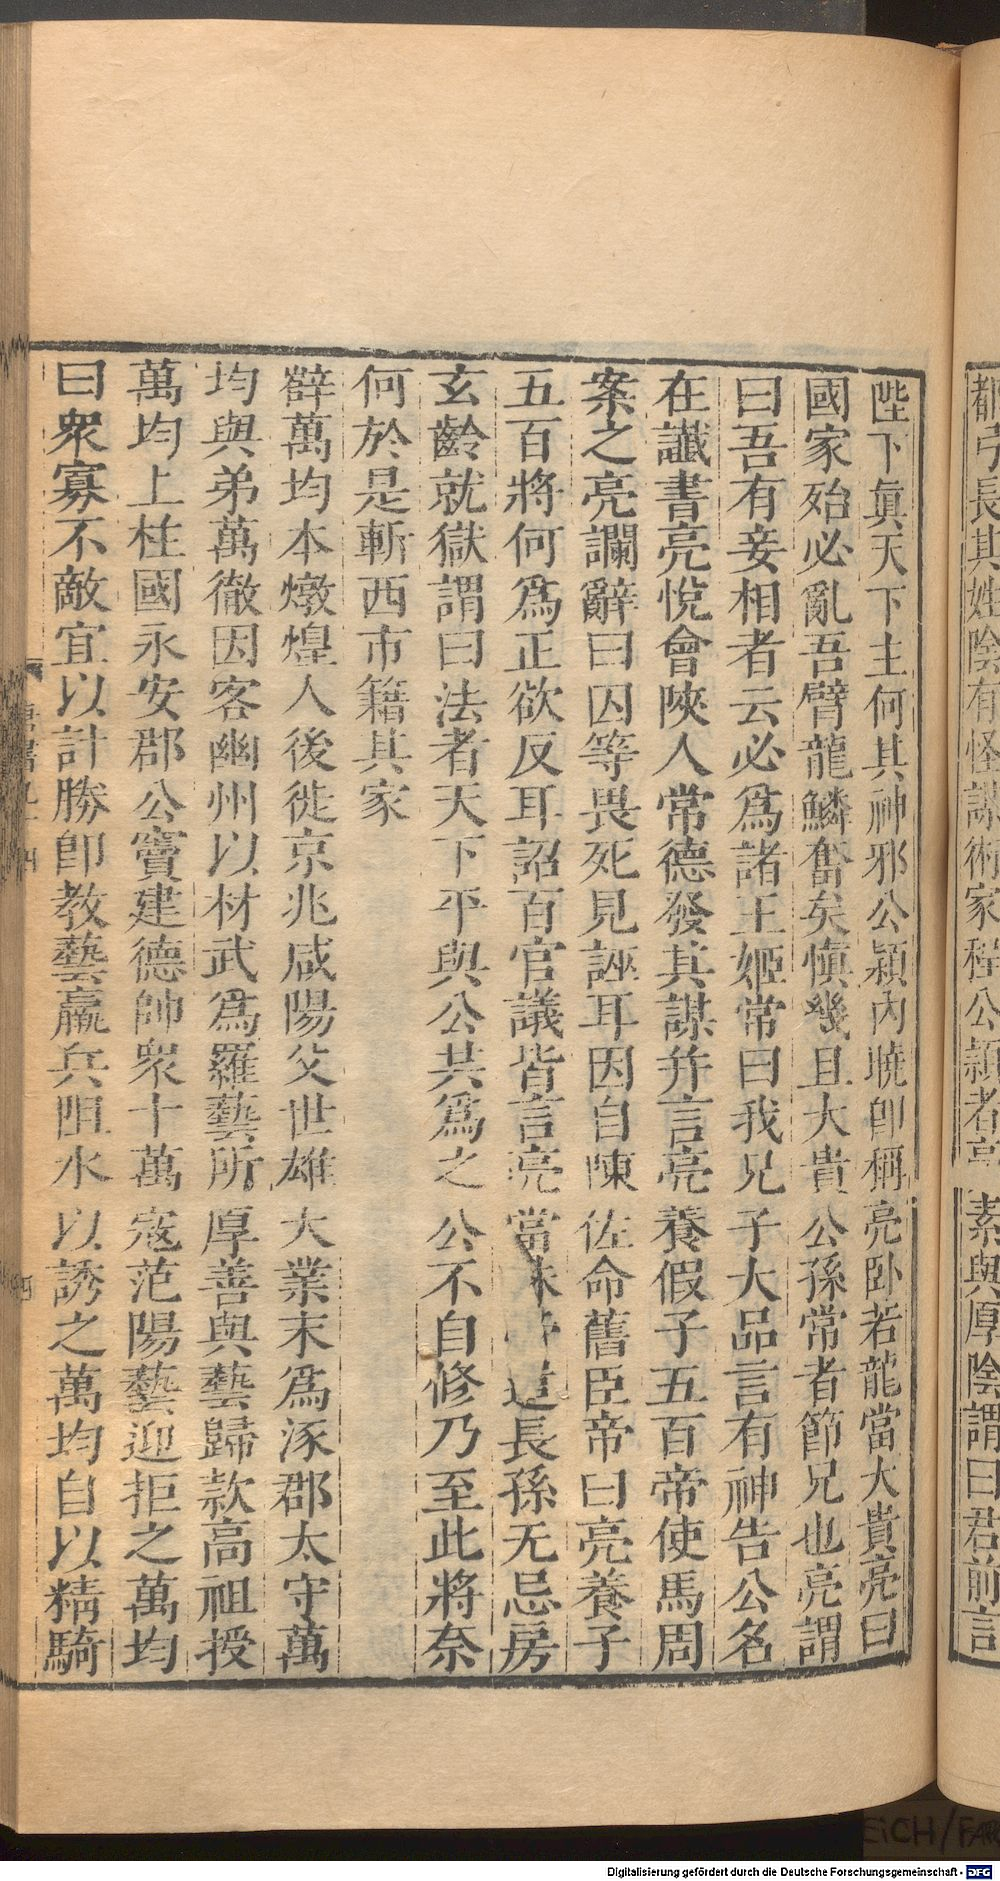 都弓長其姓陰有怪謀術家程公穎者亮素與厚陰謂曰君前言
陛下眞天下主何其神邪公穎內曉卽稱亮卧若龍當大貴亮曰
國家殆必亂吾臂龍鱗奮矣愼幾且大貴公孫常者節兄也亮謂
曰吾有妾相者云必爲諸王姬常曰我兄子大品言有神告公名
在讖書亮悅會陝人常德發其謀并言亮養假子五百帝使馬周
案之亮讕辭曰囚等畏死見誣耳因自陳佐命舊臣帝曰亮養子
五百將何爲正欲反耳詔百官議皆言亮當誅帝遣長孫无忌房
玄齡就獄謂曰法者天下平與公共爲之公不自修乃至此將奈
何於是斬西市籍其家
薛萬均本燉煌人後徙京兆咸陽父世雄大業末爲涿郡太守萬
均與弟萬徹因客幽州以材武爲羅藝所厚善與藝歸款高祖授
萬均上柱國永安郡公竇建德帥衆十萬寇范陽藝迎拒之萬均
曰衆寡不敵宜以計勝卽教藝羸兵阻水以誘之萬均自以精騎
唐書九十四
四
EICH/FAR
Digitalisierung gefördert durch die Deutsche Forschungsgemeinschaft - DFG